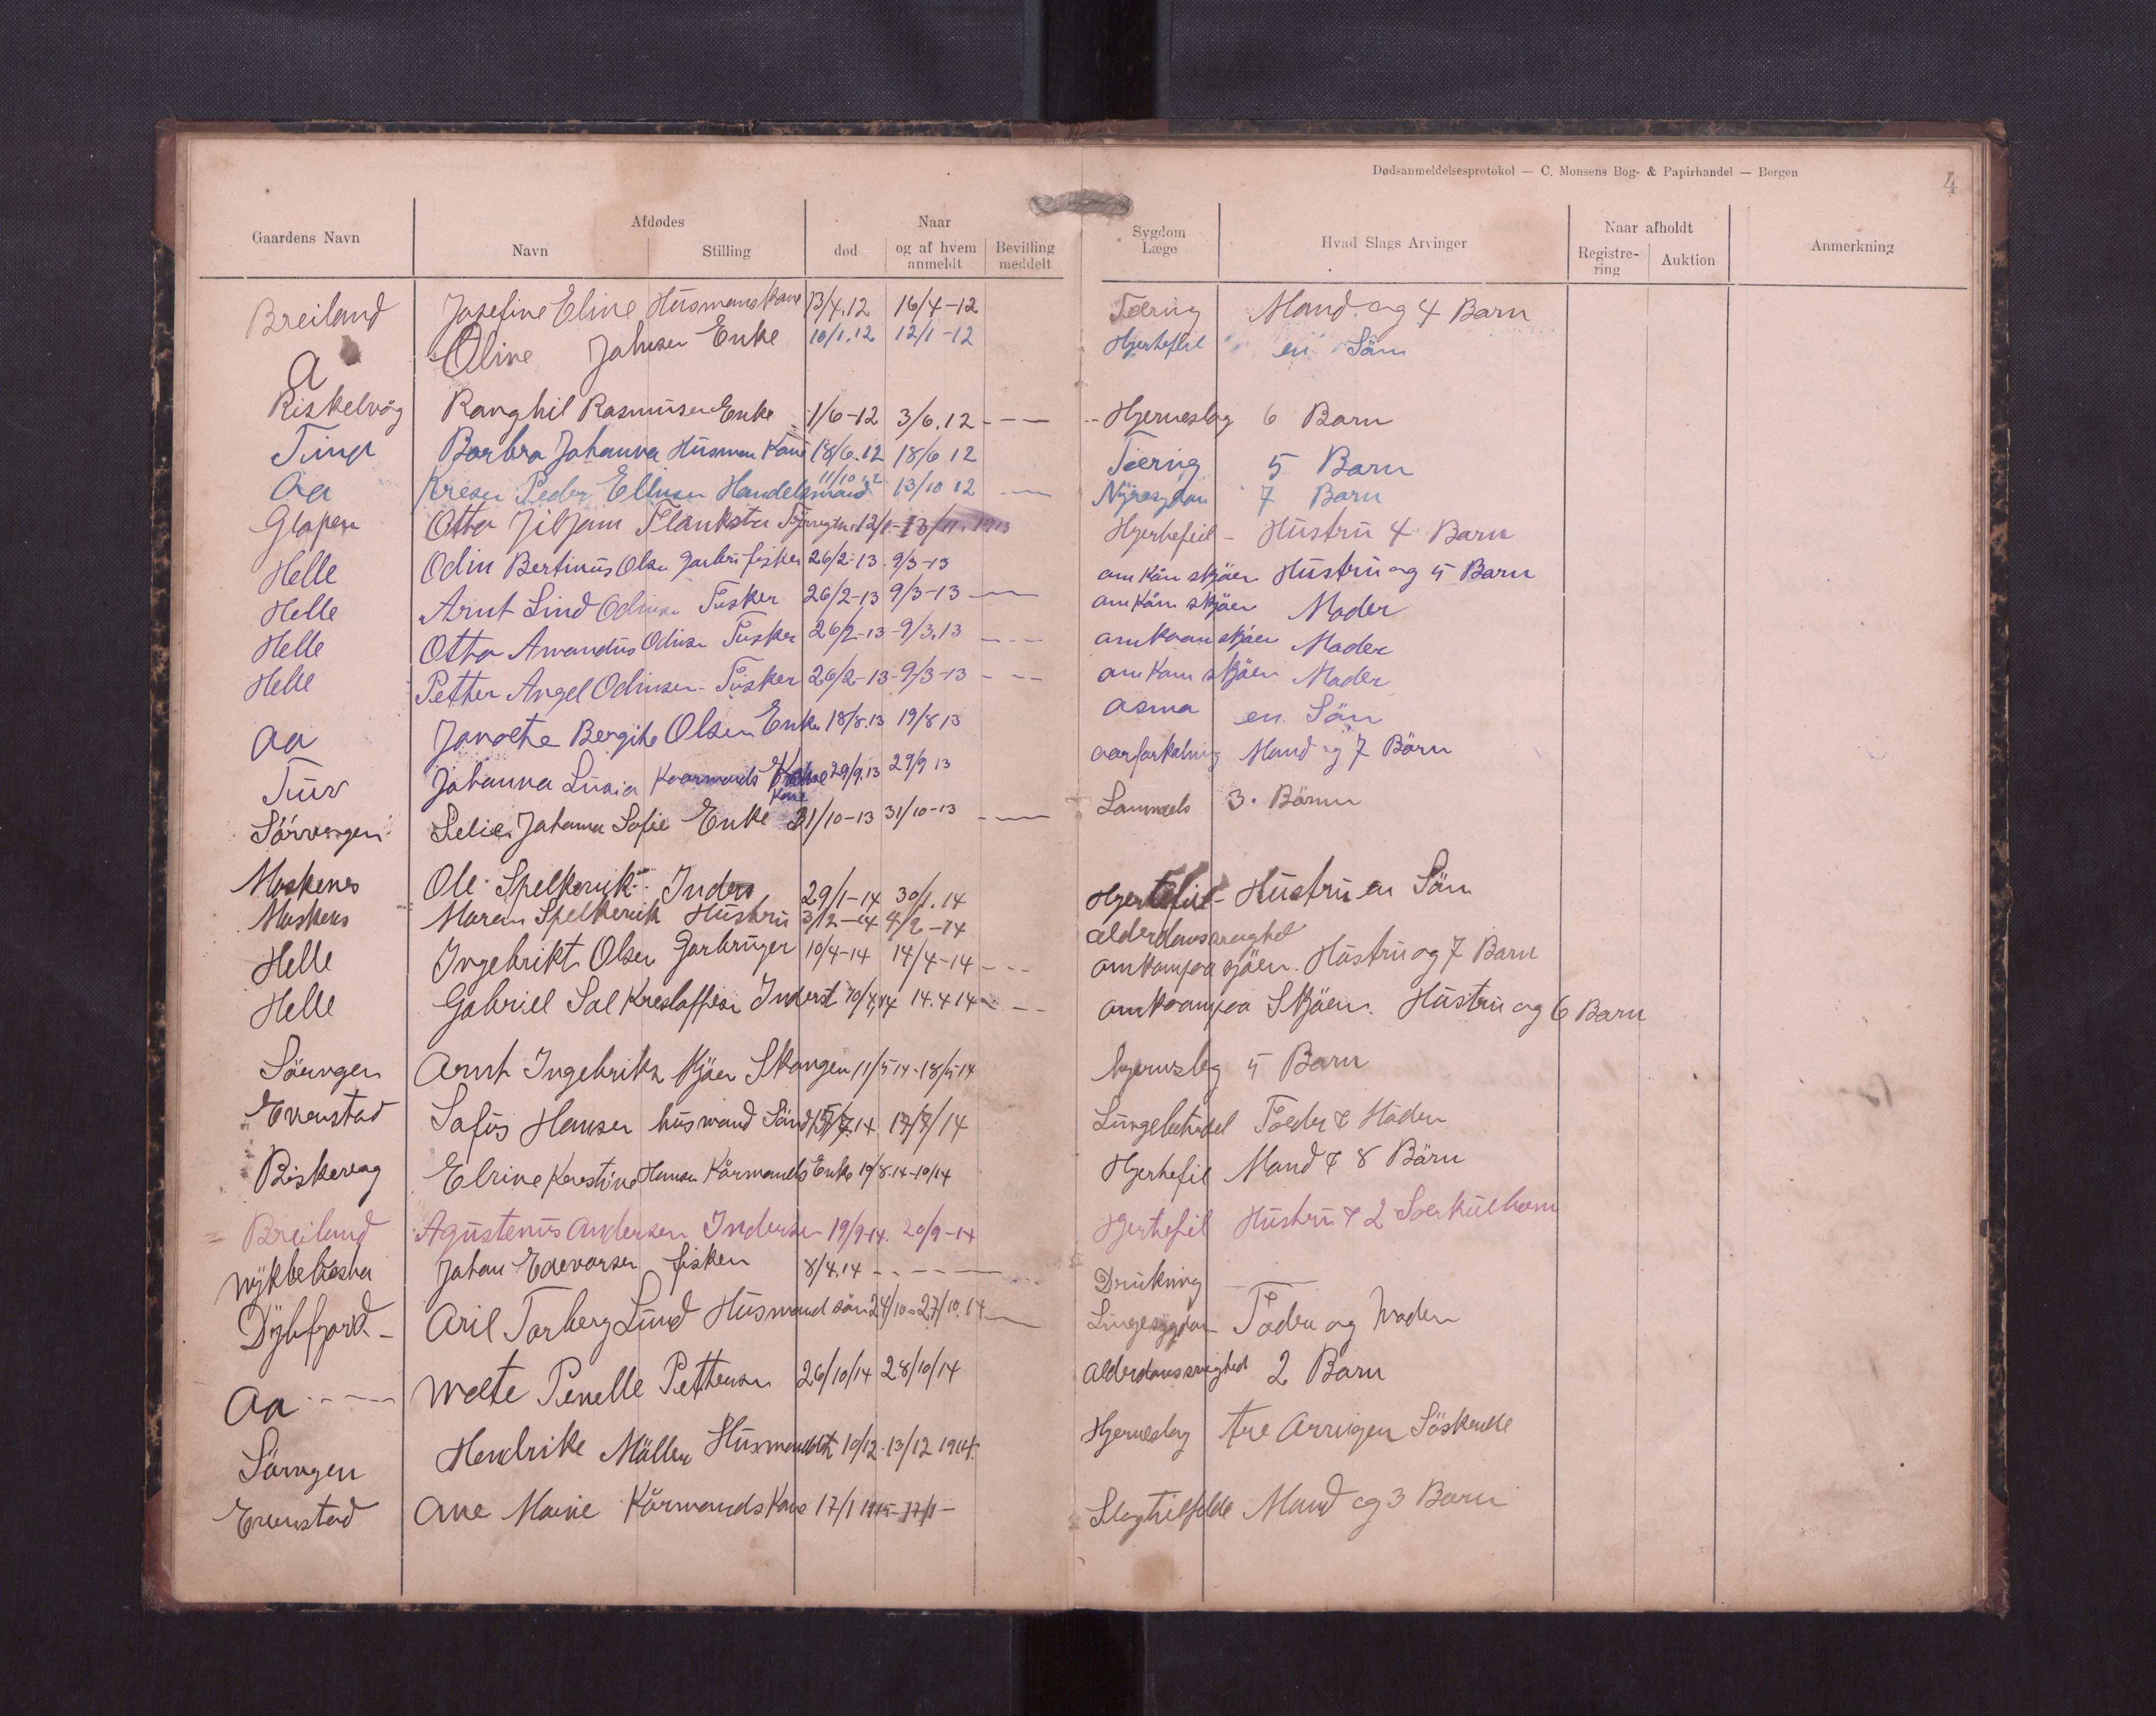 Dødsanmeldelsesprotokol — C. Monsens Bog- & Papirhandel — Bergen
4
Gaardens Navn Afdødes Navn Stilling Naar død og af hvem anmeldt Bevilling meddelt Sygdom Læge Hvad Slags Arvinger Naar afholdt Registrering Auktion Anmerkning
Breiland Josefine Eline Husmans Kone 13/4.12 16/4-12 Tæring Mand og 4 Barn
A Oline Johnsen Enke 10/1.12 12/1-12 Hjertefeil en Sön
Riskelvåg Ranghil Rasmusen Enke 1/6-12 3/6.12 - - - Hjerneslag 6 Barn
Tind Barbra Johanna Husman Kone 18/6.12 18/6 12 Tæring 5 Barn
Aa Peder Ellusen Handelsmand 11/10 12 13/10 12 Nyresygdom 7 Barn
Glapen Otto Jiljam Flankstu 12/1- 1913 Hjertefeil - Hustru 4 Barn
Helle Odin Bertinus Olsen fisker 26/2-13. 9/3-13 om kom skjöen Hustru og 5 Barn
Helle Arnt Lind Odinsen Fisker 26/2-13 9/3-13 om kom skjöen Moder
Helle Otto Amandus Odinsen Fisker 26/2-13 -9/3.13 omkom skjöen Moder
Helle Petter Angel Odinsen Fisker 26/2-13-9/3-13 - - - om kom skjöen Moder
Aa Bergite Olsen Enke 18/8.13 19/8 13 asma en Sön
Tuv Johanna Lusia Kaarmands Kone 29/9.13 29/9 13 aarforkalning Mand og 7 Börn
Sörvaagen Johanna Sofie Enke 31/10-13 31/10-13 3. Börn
Moskenes Ole Spelkevik Inders 29/1-14 30/1.14 Hjertefeil - Hustru en Sön
Moskenes Maren Spelkevik Hustru 3/12-14 4/2-14 alderdomssvaghed
Helle Ingebrikt Olsen Garbruger 10/4-14 14/4-14 - - - omkom paa sjöen. Hustru og 7 Barn
Helle Gabriel Sal Kreslaffesen Inderst 10/4.14 14.4 14 - - omkom paa Skjöen. Hustru og 6 Barn
Sörvagen Arnt Ingebrikt 11/5 14-18/5-14 hjerneslag 5 Barn
Evenstad Lafus Hansen husmand Sön 14 17/7/14 Foeder & Moder
Riskevag Elrine Kerestine Hansen Kårmands Enke 19/8.14-10/14 Hjertefil Mand & 8 Börn
Breiland Agustenus Andersen Inderser 19/9-14. 20/9-14 Hjertefil Hustru & 2
Johan Edevarsen fisken 8/4.14 - - - - Drukning
Dybfjord - Aril Torberg Lund Husmand sön 24/10-27/10.14 Lungesygdom Foder og Moder
Aa - - - - Penelle Pettersen 26/10/14 28/10/14 Alderdomssvaghed 2 Barn
Sörvagen Hendrike Möller 10/12-13/12 1914. Hjerneslag tre Arvigen Söskende
Evenstad Ane Marie Kårmands Kone 17/1 1915-17/1- Slagtilfelde Mand og 3 Barn